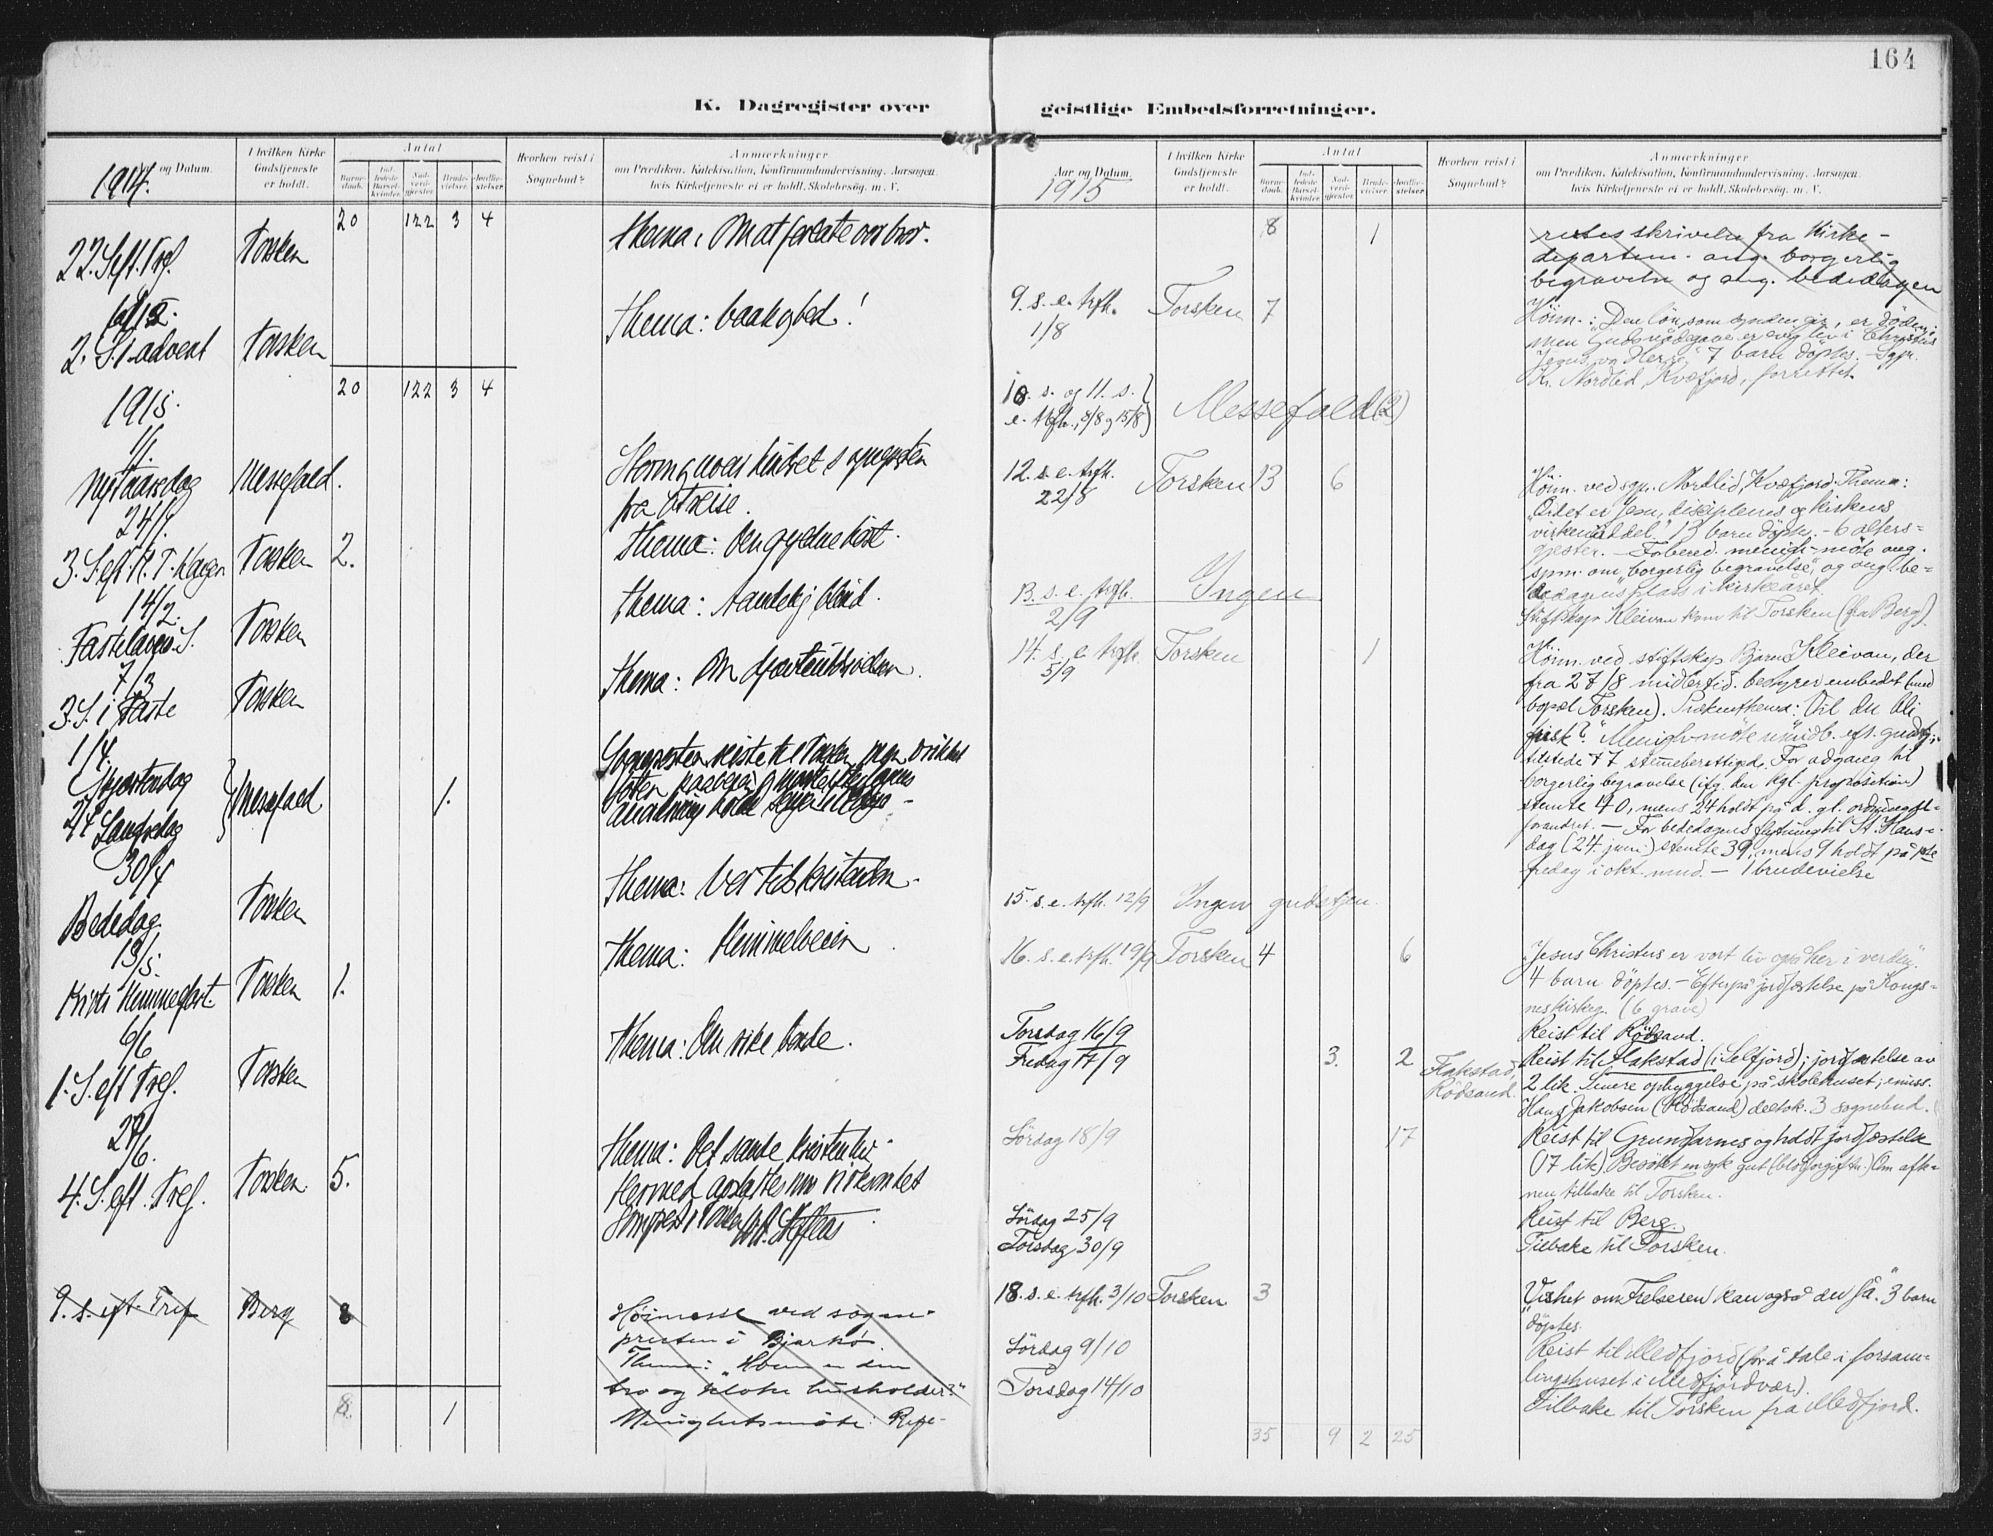 164
K. Dagregister over
geistlige Embedsforretninger.
1914. og Datum.
I hvilken Kirke Gudstjeneste er holdt.
Antal
Barne-daab.
Ind-ledede Barsel-kvinder.
Nad-verd-gjester.
Brude-vielser.
Jordfæ-stelser.
Hvorhen reist i Sognebud?
Anmærkninger
om Prædiken, Katekisation, Konfirmandundervisning, Aarsagen,
hvis Kirketjeneste ei er holdt, Skolebesøg, m. V.
20 122 3 4
22. S. eft. Tref. Torsken Thema: Om at forlate vor bror.
2. S. i advent Torsken Thema: vaak og bed!
20 122 3 4
1915.
1/1.
Nytaarsdag Messefald.
fra Utreise.
24/1.
3. S. eft. H. T. Kongen Torsken 2. Thema: Den gyldne kost.
14/2.
Fastelavns S. Torsken Thema: Aandelig blind.
7/3
3. S. i Faste Torsken Thema: Om
1/4.
Skjærtorsdag
2/4 Langfredag Messefald 1. Sognepresten reiste til Torsken
30/4
Bededag Torsken Thema: Ver
13/5.
Kristi Himmelfart. Torsken 1. Thema: Himmelveien
6/6
1. S. eft Tref. Torsken Thema: Den rike bonde.
27/6.
4. S. eft. Tref. Torsken 5. Thema: Det sande kristenliv.
Hermed
9. s. eft. Tref Berg 8 Høimesse ved sogne-
presten i Bjarkø.
Thema: "Hvem er den
tro og kloke husholder?"
Menighetsmøte: Refe-
8. 1
Aar og Datum.
1915
I hvilken Kirke Gudstjeneste er holdt.
Antal
Barne-daab.
Ind-ledede Barsel-kvinder.
Nad-verd-gjester.
Brude-vielser.
Jordfæ-stelser.
Hvorhen reist i Sognebud?
Anmærkninger
om Prædiken, Katekisation, Konfirmandundervisning, Aarsagen,
hvis Kirketjeneste ei er holdt, Skolebesøg, m. V.
8 1 rertes skrivelse fra Kirke-
departem. ang. borgerlig
begravelse og ang. bededagen
9. s. e. trefh. Torsken 7 Höim.: "Den lön, som synden gir, er döden;
1/8 men Guds nådegave er evig liv i Christus
Jesus, vor Herre" 7 barn döptes. - Sgpr.
Kr. Nordlid, Kvæfjord, forrettet.
10. s. og 11. s.
e. trefh., 8/8 og 15/8) Messefald (2)
12. s. e. trefh. Torsken 13 6 Höim. ved sgpr. Nordlid, Kvæfjord. Thema:
22/8 "Ordet er Jesu, disciplenes og kirkens
virkemiddel." 13 barn döptes. - 6 alters-
gjester. - Forbered. menigh.-möte ang.
spm. om "borgerlig begravelse", og ang. be-
dedagens plass i kirkeåret.
Stiftskap. Kleivan kom til Torsken (fra Berg).
13. s. e. trefh. Ingen
2/9
14. s. e. trefh. Torsken 1 Höim. ved stiftskap. Bjarne Kleivan, der
5/9 fra 27/8 midlertid. bestyrer embedet (med
bopæl Torsken). Prækenthema: "Vil du bli
frisk?" Menighetsmöte umidb. eft. gudstj.;
tilstede 77 stemeberettigede. For adgang til
borgerlig begravelse (ifg. den kgl. proposition)
stemte 40, mens 24 holdt på d. gl. ordning
forandret. - For bededagens flytning til St. Hans-
dag (24. juni) stemte 39, mens 9 holdt på 1ste
fredag i okt. mnd. - 1 brudevielse
15. s. e. trefh. 12/9 Ingen gudstjen.
16. s. e. trefh. 19/9 Torsken 4 6 "Jesus Christus er vort liv også her i verden."
4 barn döptes. - Efterpå jordfæstelse på Kongs-
neskirkeg. (6 grave)
Torsdag 16/9 Reist til Rödsand.
Fredag 17/9 3. 2 Flakstad, Rödsand. Reist til Flakstad (i Selfjord); jordfæstelse av
2 lik. Senere opbyggelse på skolehuset; emiss.
Hans Jakobsen (Rödsand) deltok. 3 sognebud.
Lördag 18/9 17 Reist til Grundfarnes og holdt jordfæstelse
(17 lik) Besökt en syk gut (blodforgiftn.) Om afte-
nen tilbake til Torsken.
Lördag 25/9 Reist til Berg.
Torsdag 30/9 Tilbake til Torsken.
18. s. e. trefh. 3/10 Torsken 3 "Vishet om Frelseren kan også du få." 3 barn
döptes.
Lördag 9/10 Reist til Medfjord (for å tale i forsam-
lingshuset i Medfjordvær).
Torsdag 14/10 Tilbake til Torsken fra Medfjord.
35 9 2 25